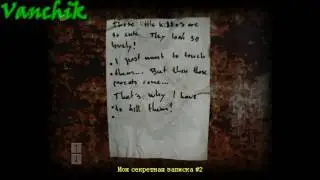 Vanchik
Those little kiddos are
so cute. They look so
lovely!
I just want to touch
them... But then those
parents come...
That's why I have
to kill them!
Моя секретная записка #2